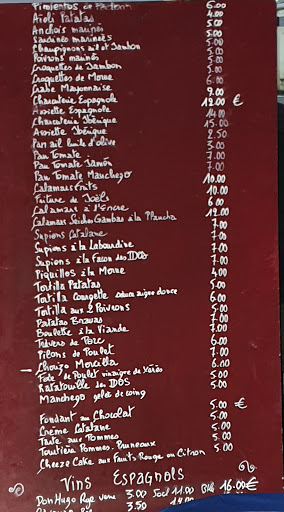 Pimientos de Padron 6.00
Aioli Patatas 4.00
Anchois marinés 5.00
Sardines marinées 5.00
Champignons ail et Jambon 5.00
Poivrons marinés 5.00
Croquettes de Jambon 5.00
Croquettes de Morue 6.00
Crabe Mayonnaise 9.00
Charcuterie Espagnole 12.00 €
Assiette Espagnole 14.00
Charcuterie Ibérique 15.00
Assiette Ibérique 2.50
Pan ail huile d'olive 3.00
Pan Tomate 7.00
Pan Tomate Jamón 7.00
Pan Tomate Manchego 10.00
Calamars frits 10.00
Friture de Joëls 6.00
Calamars à l'Encre 12.00
Calamars Seiches Gambas à la Plancha 7.00
Supions Catalane 7.00
Supions à la Labourdine 7.00
Supions à la Façon des IDOS 7.00
Piquillos à la Morue 4.00
Tortilla Patatas 5.00
Tortilla Courgette sauce aigre douce 6.00
Tortilla aux 2 Poivrons 5.00
Patatas Bravas 7.00
Boulette à la Viande 7.00
Travers de Porc 6.00
Pilons de Poulet 7.00
Chorizo Morcilla 6.00
Foie de Poulet vinaigre de Xérès 5.00
Ratatouille des IDOS 5.00
Manchego gelée de coing
Fondant au Chocolat 5.00 €
Crème Catalane 5.00
Tarte aux Pommes 5.00
Tourtière Pommes Pruneaux 5.00
Cheeze Cake aux Fruits Rouge ou Citron 5.00
Vins Espagnols
Don Hugo Rge verre 3.00 50cl 11.00 Btl 16.00 €
3.50 14.00